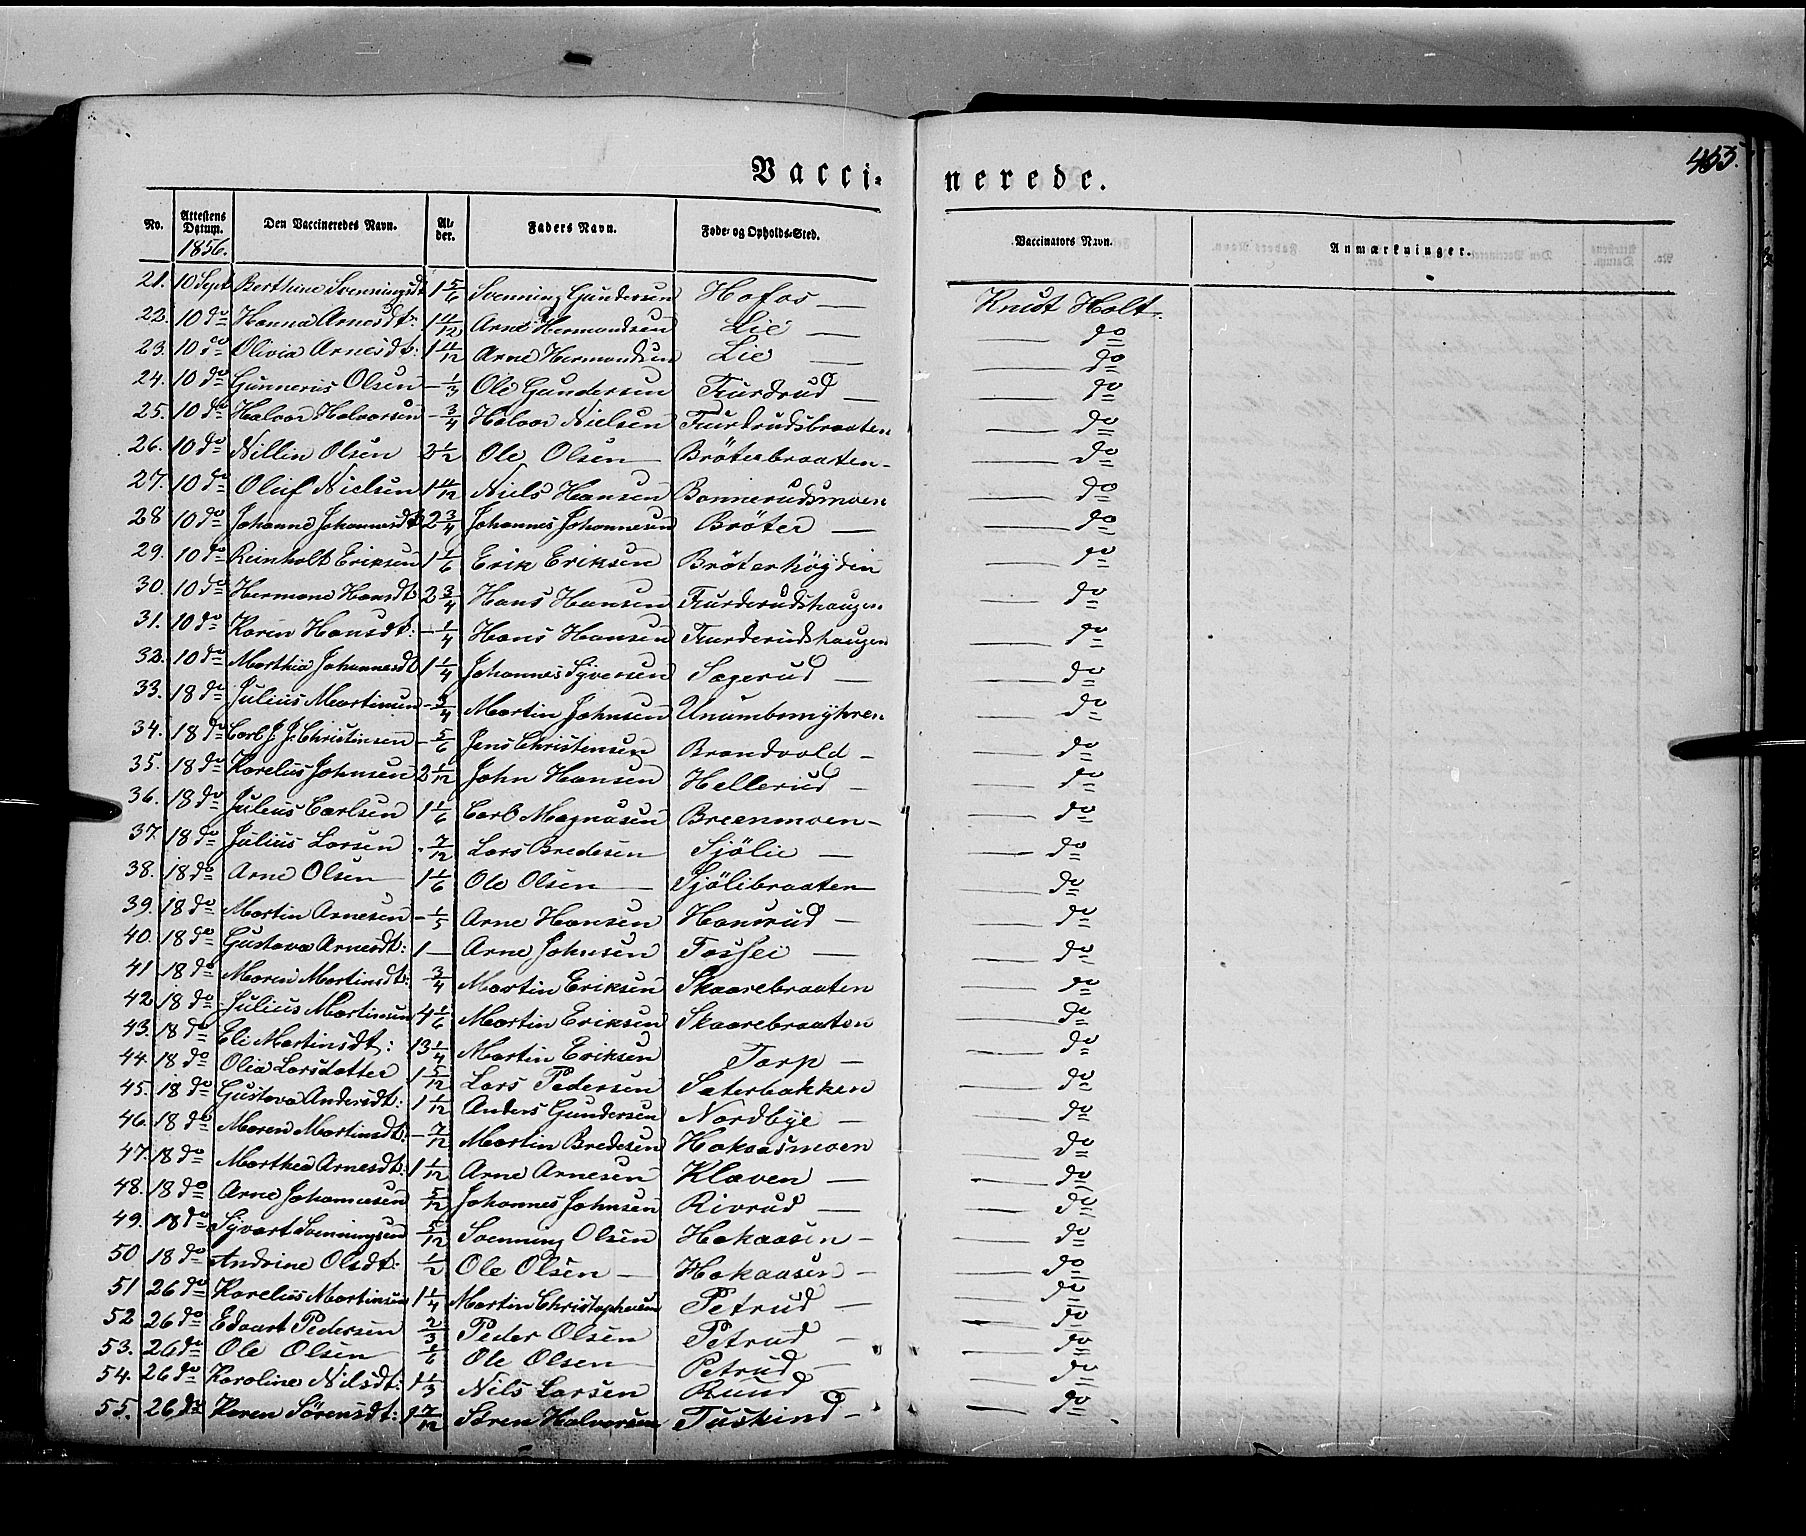 455.
Vaccinerede.
No. Attestens Datum. Den Vaccineredes Navn. Alder. Faders Navn. Føde- og Opholds-Sted. Vaccinators Navn. Anmærkninger.
1856.
21. 10 Sept Berthine Svenningsdt 1 5/6 Svenning Gundersen Hofos — Knut Holt.
22. 10 do Hanna Arnesdt: 1 11/12 Arne Hermandsen Lie — — do
23. 10 do Olivia Arnesdt: 1 11/12 Arne Hermandsen Lie — — do
24. 10 do Gunnerius Olsen - 1/3 Ole Gundersen Furdrud — — do
25. 10 do Halvor Halvorsen - 3/4 Halvor Nielsen Furdrudsbraaten — do
26. 10 do Nillin Olsen 2 1/2 Ole Olsen — Bröterbraaten - — do
27. 10 do Oluf Nielsen 1 11/12 Niels Hansen Bannerudsmoen — do
28 10 do Johanne Johannesdt 2 3/4 Johannes Johannesen Bröter — — do
29. 10 do Reinholt Eriksen 1 1/6 Erik Eriksen Bröterhöjden — do
30. 10 do Hermane Hansdt 2 3/4 Hans Hansen Furderudshaugen — do
31. 10 do Karen Hansdt: - 1/4 Hans Hansen Furderudshaugen — do
32. 10 do Marthia Johannesdt 1 1/4 Johannes Syversen Sagerud — — do
33. 18 do Julius Martinsen - 3/4 Martin Johnsen Unumbsmyhren — do
34. 18 do Carl J. J. Christinsen - 5/6 Jens Christensen Brandvold - — do
35. 18 do Karelius Johnsen 2 1/12 John Hansen Hellerud — — do
36. 18 do Julius Carlsen 1 1/6 Carl Magnusen Breenmoen - — do
37. 18 do Julius Larsen - 7/12 Lars Bredesen Sjölie — — do
38. 18 do Arne Olsen 1 1/6 Ole Olsen — Sjölibraaten — do
39. 18 do Martin Arnesen - 1/5 Arne Hansen Hansrud — — do
40. 18 do Gustava Arnesdt: 1 — Arne Johnsen Fossei — — do
41 18 do Maren Martinsdt: 3/4 Martin Eriksen Skaarebraaten — do
42 18 do Julius Martinsen 4 1/6 Martin Eriksen Skaarebraaten — do
43. 18 do Eli Martinsdt: 13 1/4 Martin Eriksen Torp — — do
44. 18 do Olia Larsdatter 1 5/12 Lars Pedersen Saterbakken — do
45. 18 do Gustava Andersdt: 1 1/12 Anders Gundersen Nordbye — — do
46. 18 do Maren Martinsdt: - 7/12 Martin Bredesen Hokaasmoen — do
47. 18 do Marthea Arnesdt: 1 1/12 Arne Arnesen Klaven — — do
48. 18 do Arne Johannesen 5/12 Johannes Johnsen Rivrud — — do
49. 18 do Syvart Svenningsen 5/12 Svenning Olsen Hokaasen - — do
50 18 do Andrine Olsdt: 1/2 Ole Olsen — Hokaasen - — do
51 26 do Karelius Martinsen 1 1/4 Martin Christophersen Petrud — — do
52 26 do Edvart Pedersen 2/3 Peder Olsen Petrud — — do
53. 26 do Ole Olsen Ole Olsen — Petrud — — do
54. 26 do Karoline Nilsdt: 1 1/3 Nils Larsen Ruud — — do
55. 26 do Karen Sörensdt: 1 7/12 Sören Halvorsen Tuskind - — do